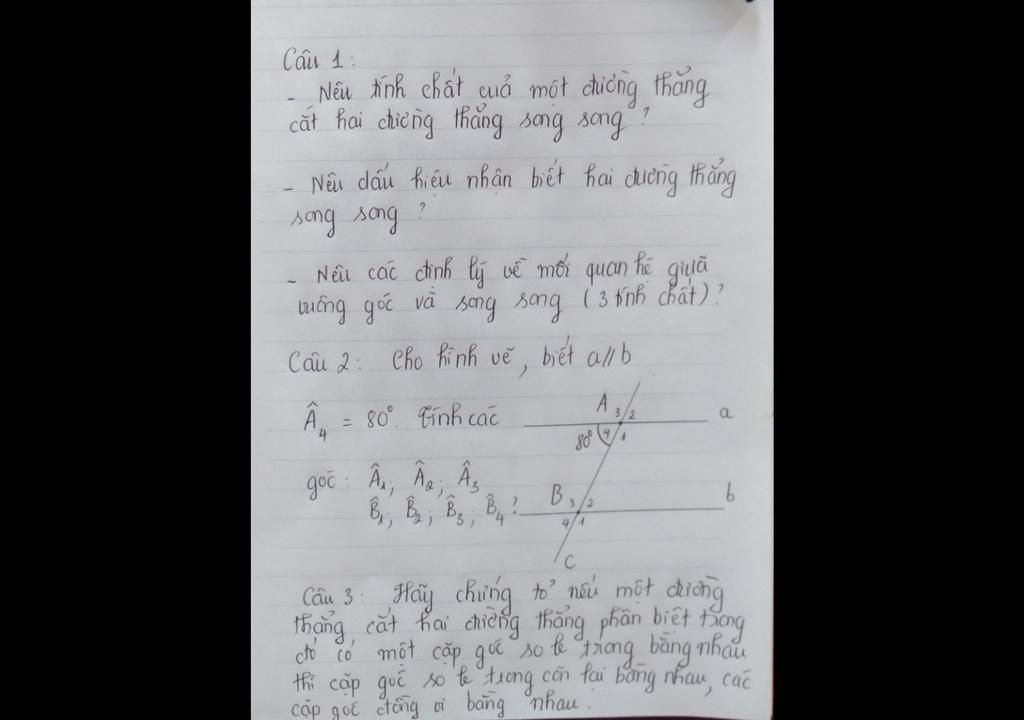 Câu 1:
- Nêu tính chất của một đường thẳng
cắt hai đường thẳng song song ?
- Nêu dấu hiệu nhận biết hai đường thẳng
song song ?
- Nêu các định lý về mối quan hệ giữa
vuông góc và song song (3 tính chất)?
Câu 2: Cho hình vẽ, biết a//b
Â₄ = 80°. Tính các
góc: Â₁; Â₂; Â₃
B̂₁; B̂₂; B̂₃; B̂₄ ?
A 3 2 a
80° 4 1
B 3 2 b
4 1
C
Câu 3: Hãy chứng tỏ nếu một đường
thẳng cắt hai đường thẳng phân biệt trong
đó có một cặp góc so le trong bằng nhau
thì cặp góc so le trong còn lại bằng nhau, các
cặp góc đồng vị bằng nhau.